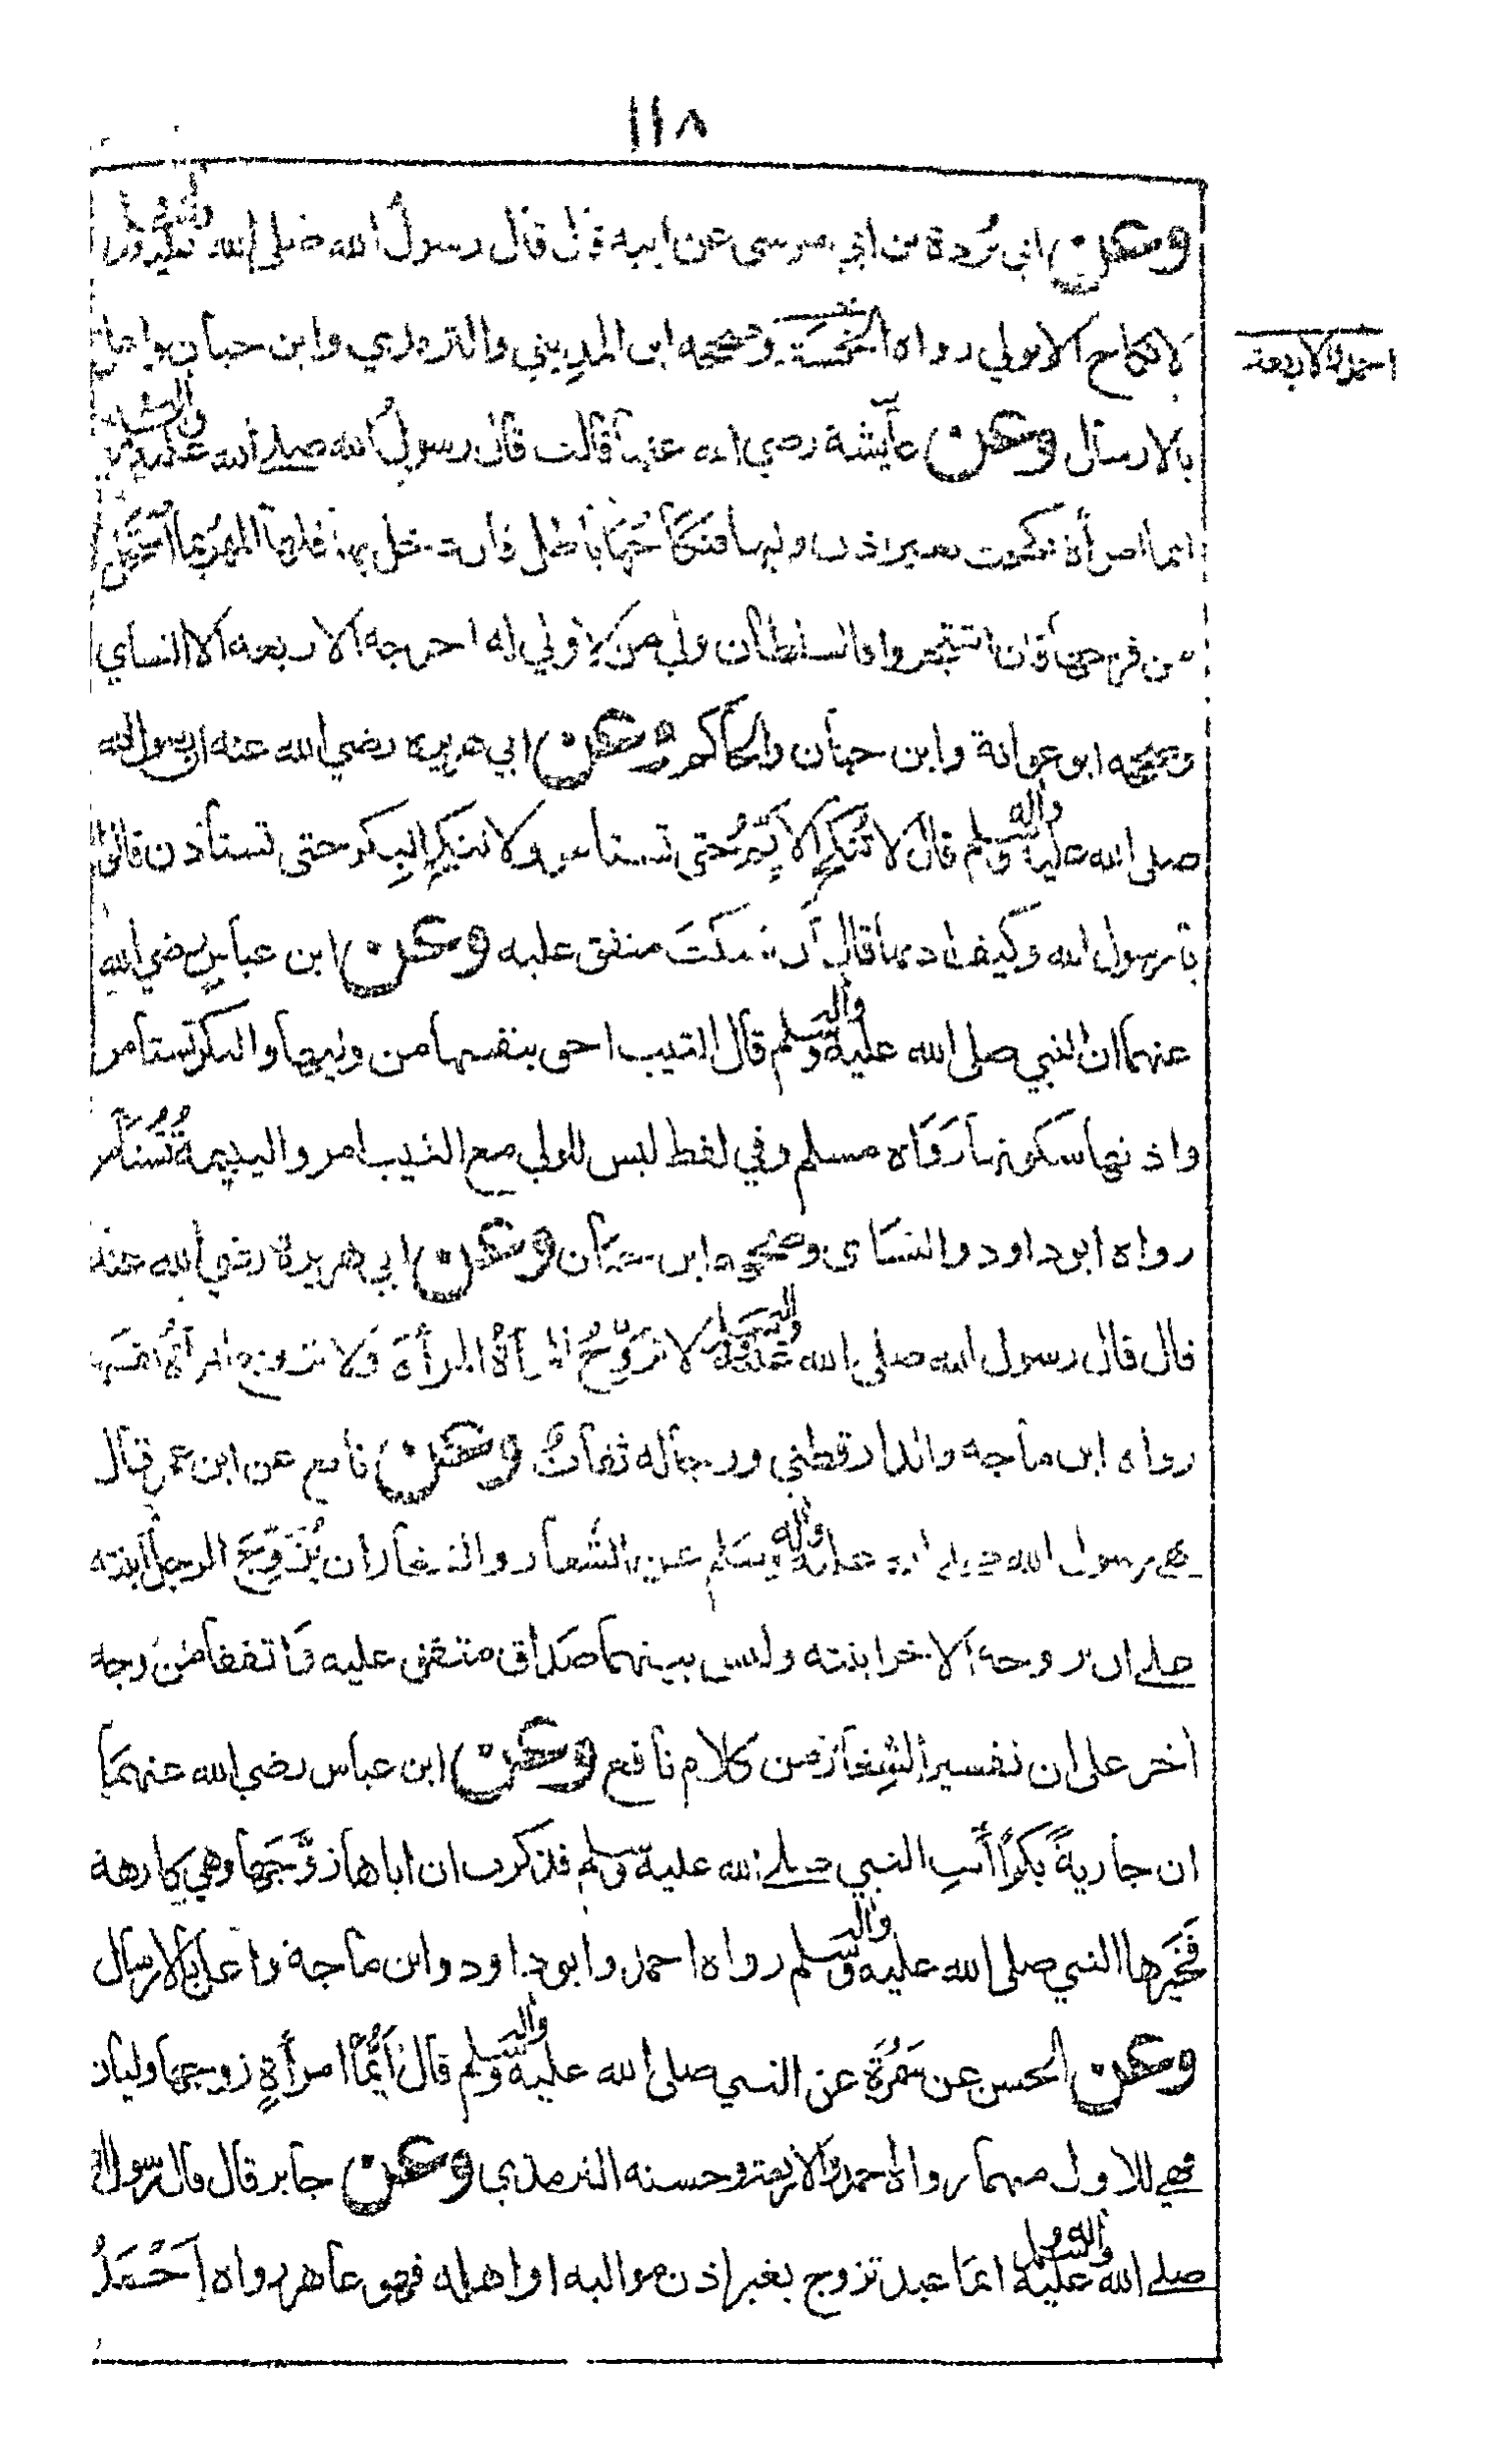 ١١٨
وعن ابي بُردة بن ابي موسى عن ابيه قال قال رسولُ الله صلى الله عليه وآله وسلم
لا نكاح الا بولي رواه الخمسة وصححه ابن المديني والترمذي وابن حبان واعل
احمد والاربعة
بالارسال وعن عايشة رضي الله عنها قالت قال رسولُ الله صلى الله عليه وآله وسلم
ايما امرأة نكحت بغير اذن وليها فنكاحُها باطل فان دخل بها فلها المهر بما استحل
من فرجها فان اشتجروا فالسلطان ولي من لا ولي له اخرجه الاربعه الا النساي
وصححه ابو عوانة وابن حبان والحاكم وعن ابي هريره رضي الله عنه ان رسول الله
صلى الله عليه وآله وسلم قال لا تُنكح الايّم حتى تستامر ولا تنكح البكر حتى تستأذن قالوا
يا رسول الله وكيف اذنها قال ان تسكتَ متفق عليه وعن ابن عباسٍ رضي الله
عنهما ان النبي صلى الله عليه وآله وسلم قال الثيب احق بنفسها من وليها والبكر تستامر
واذنها سكوتها رواه مسلم وفي لفظ ليس للولي مع الثيب امر واليتيمة تُستأمر
رواه ابو داود والنساى وصححه ابن حبان وعن ابي هريرة رضي الله عنه
قال قال رسول الله صلى الله عليه وآله وسلم لا تزوّجُ المرأةُ المرأةَ ولا تزوج المرأةُ نفسَها
رواه ابن ماجه والدارقطني ورجاله ثقاتٌ وعن نافع عن ابن عمر قال
نهى رسول الله صلى الله عليه وآله وسلم عن الشغار والشغار ان يُزَوِّجَ الرجل ابنته
على ان يزوجه الاخر ابنته وليس بينهما صداق متفق عليه واتفقا من وجه
اخر على ان تفسير الشِغار من كلام نافع وعن ابن عباس رضي الله عنهما
ان جاريةً بكرًا أتتِ النبي صلى الله عليه وسلم فذكرت ان اباها زوّجها وهي كارهة
فخَيّرها النبي صلى الله عليه وآله وسلم رواه احمد وابو داود وابن ماجة واعل بالارسال
وعن الحسن عن سَمُرَةَ عن النبي صلى الله عليه وآله وسلم قال أيُّما امرأةٍ زوجها وليان
فهي للاول منهما رواه احمد والاربعة وحسنه الترمذي وعن جابر قال قال رسول الله
صلى الله عليه وآله وسلم ايما عبد تزوج بغير اذن مواليه او اهله فهو عاهر رواه احْمَدُ